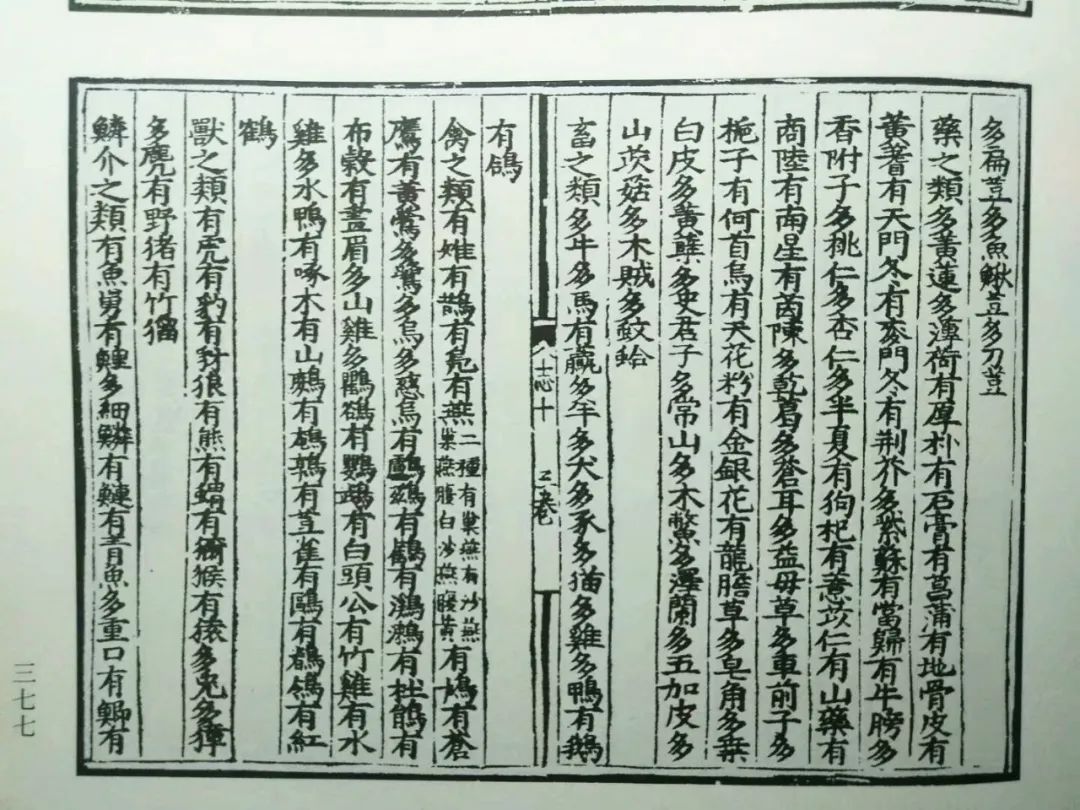 多扁荳多魚鰍荳多刀荳
藥之類多黃蓮多薄荷有厚朴有石膏有菖蒲有地骨皮有
黃蓍有天門冬有麥門冬有荆芥多紫蘇有當歸有牛膀多
香附子多桃仁多杏仁多半夏有狗杞有薏苡仁有山藥有
商陸有南星有茵陳多乾葛多蒼耳多益母草多車前子多
梔子有何首烏有天花粉有金銀花有龍膽草多皂角多桑
白皮多黃蘗多史君子多常山多木鱉多澤蘭多五加皮多
山茨菇多木賊多蚊蛤
畜之類多牛多馬有驘多羊多犬多豕多猫多雞多鴨有鵝
有鴿
禽之類有雉有鵲有鳧有燕二種有巢燕有沙燕巢燕腹白沙燕腹黃有鳩有蒼
鷹有黃鶯多鷺多烏多慈烏有鸕鷀有鸛有鸂鶒有杜鵑有
布穀有畫眉多山雞多鸜鵒有鸚鵡有白頭公有竹雞有水
雞多水鴨有啄木有山鷓有鵪鶉有荳雀有鷗有鶺鴒有紅
鶴
獸之類有虎有豹有豺狼有熊有蝟有獼猴有猿多兔多獐
多麂有野猪有竹㹨
鱗介之類有魚舅有鯉多細鱗有鰱有青魚多重口有鯽有
志十
二卷
三七七